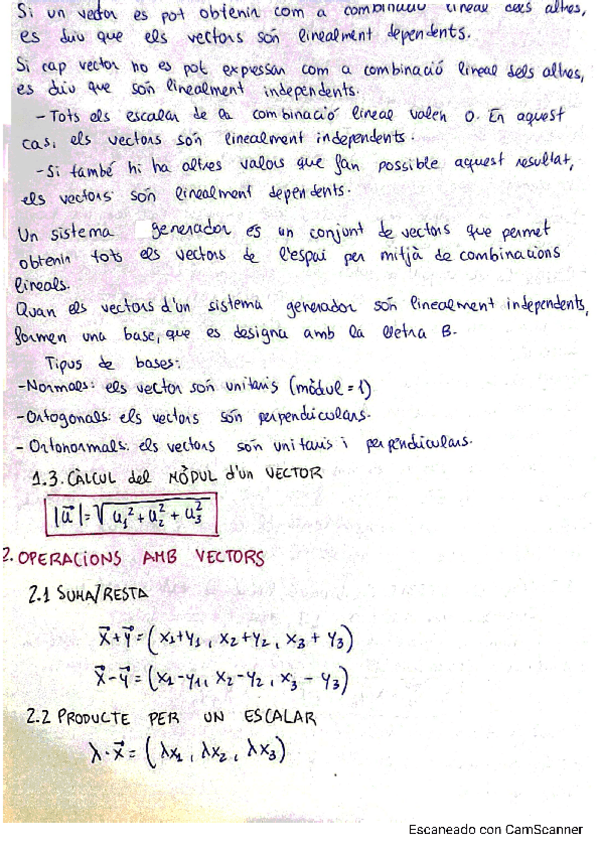 Si un vector es pot obtenir com a combinació lineal dels altres,
es diu que els vectors són linealment dependents.
Si cap vector no es pot expressar com a combinació lineal dels altres,
es diu que són linealment independents.
- Tots els escalar de la combinació lineal valen 0. En aquest
cas, els vectors són linealment independents.
- Si també hi ha altres valors que fan possible aquest resultat,
els vectors són linealment dependents.
Un sistema generador es un conjunt de vectors que permet
obtenir tots els vectors de l'espai per mitjà de combinacions
lineals.
Quan els vectors d'un sistema generador són linealment independents,
formen una base, que es designa amb la lletra B.
Tipus de bases:
- Normals: els vector són unitaris (mòdul = 1)
- Ortogonals: els vectors són perpendiculars.
- Ortonormals: els vectors són unitaris i perpendiculars.
1.3. CÀLCUL del MÒDUL d'un VECTOR
|u⃗| = √(u₁² + u₂² + u₃²)
2. OPERACIONS AMB VECTORS
2.1 SUMA/RESTA
x⃗+y⃗ = (x₁+y₁, x₂+y₂, x₃+y₃)
x⃗-y⃗ = (x₁-y₁, x₂-y₂, x₃-y₃)
2.2 PRODUCTE PER UN ESCALAR
λ·x⃗ = (λx₁, λx₂, λx₃)
Escaneado con CamScanner